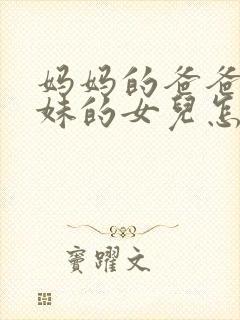 妈妈的爸爸
妹的女兒怎
窦躍文